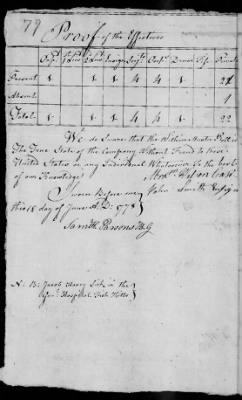 79
Proof of the Effectives
Capt 1 Lieut 2 Lieut Ensign Serjts Corpl Drum Fife Privates
Present 1 1 1 4 4 1 21
Absent 1
Total 1 1 1 4 4 1 22
We do Swear that the Within Muster Roll is
The True State of the Company Without Fraud to these
United States or any Individual Whatsoever To the best
of our Knowledge
Capt
John Smith Ensign
Sworn Before me
this 18 day of June A.D. 1778
Samll Parsons B G
N: B: Jacob Sick in the
Hospital Fish Kills